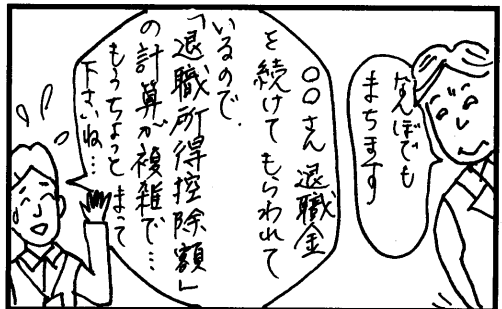 なんぼでも
まちます
○○さん 退職金
を続けてもらわれて
いるので、
「退職所得控除額」
の計算が複雑で…
もうちょっとまって
下さいね…